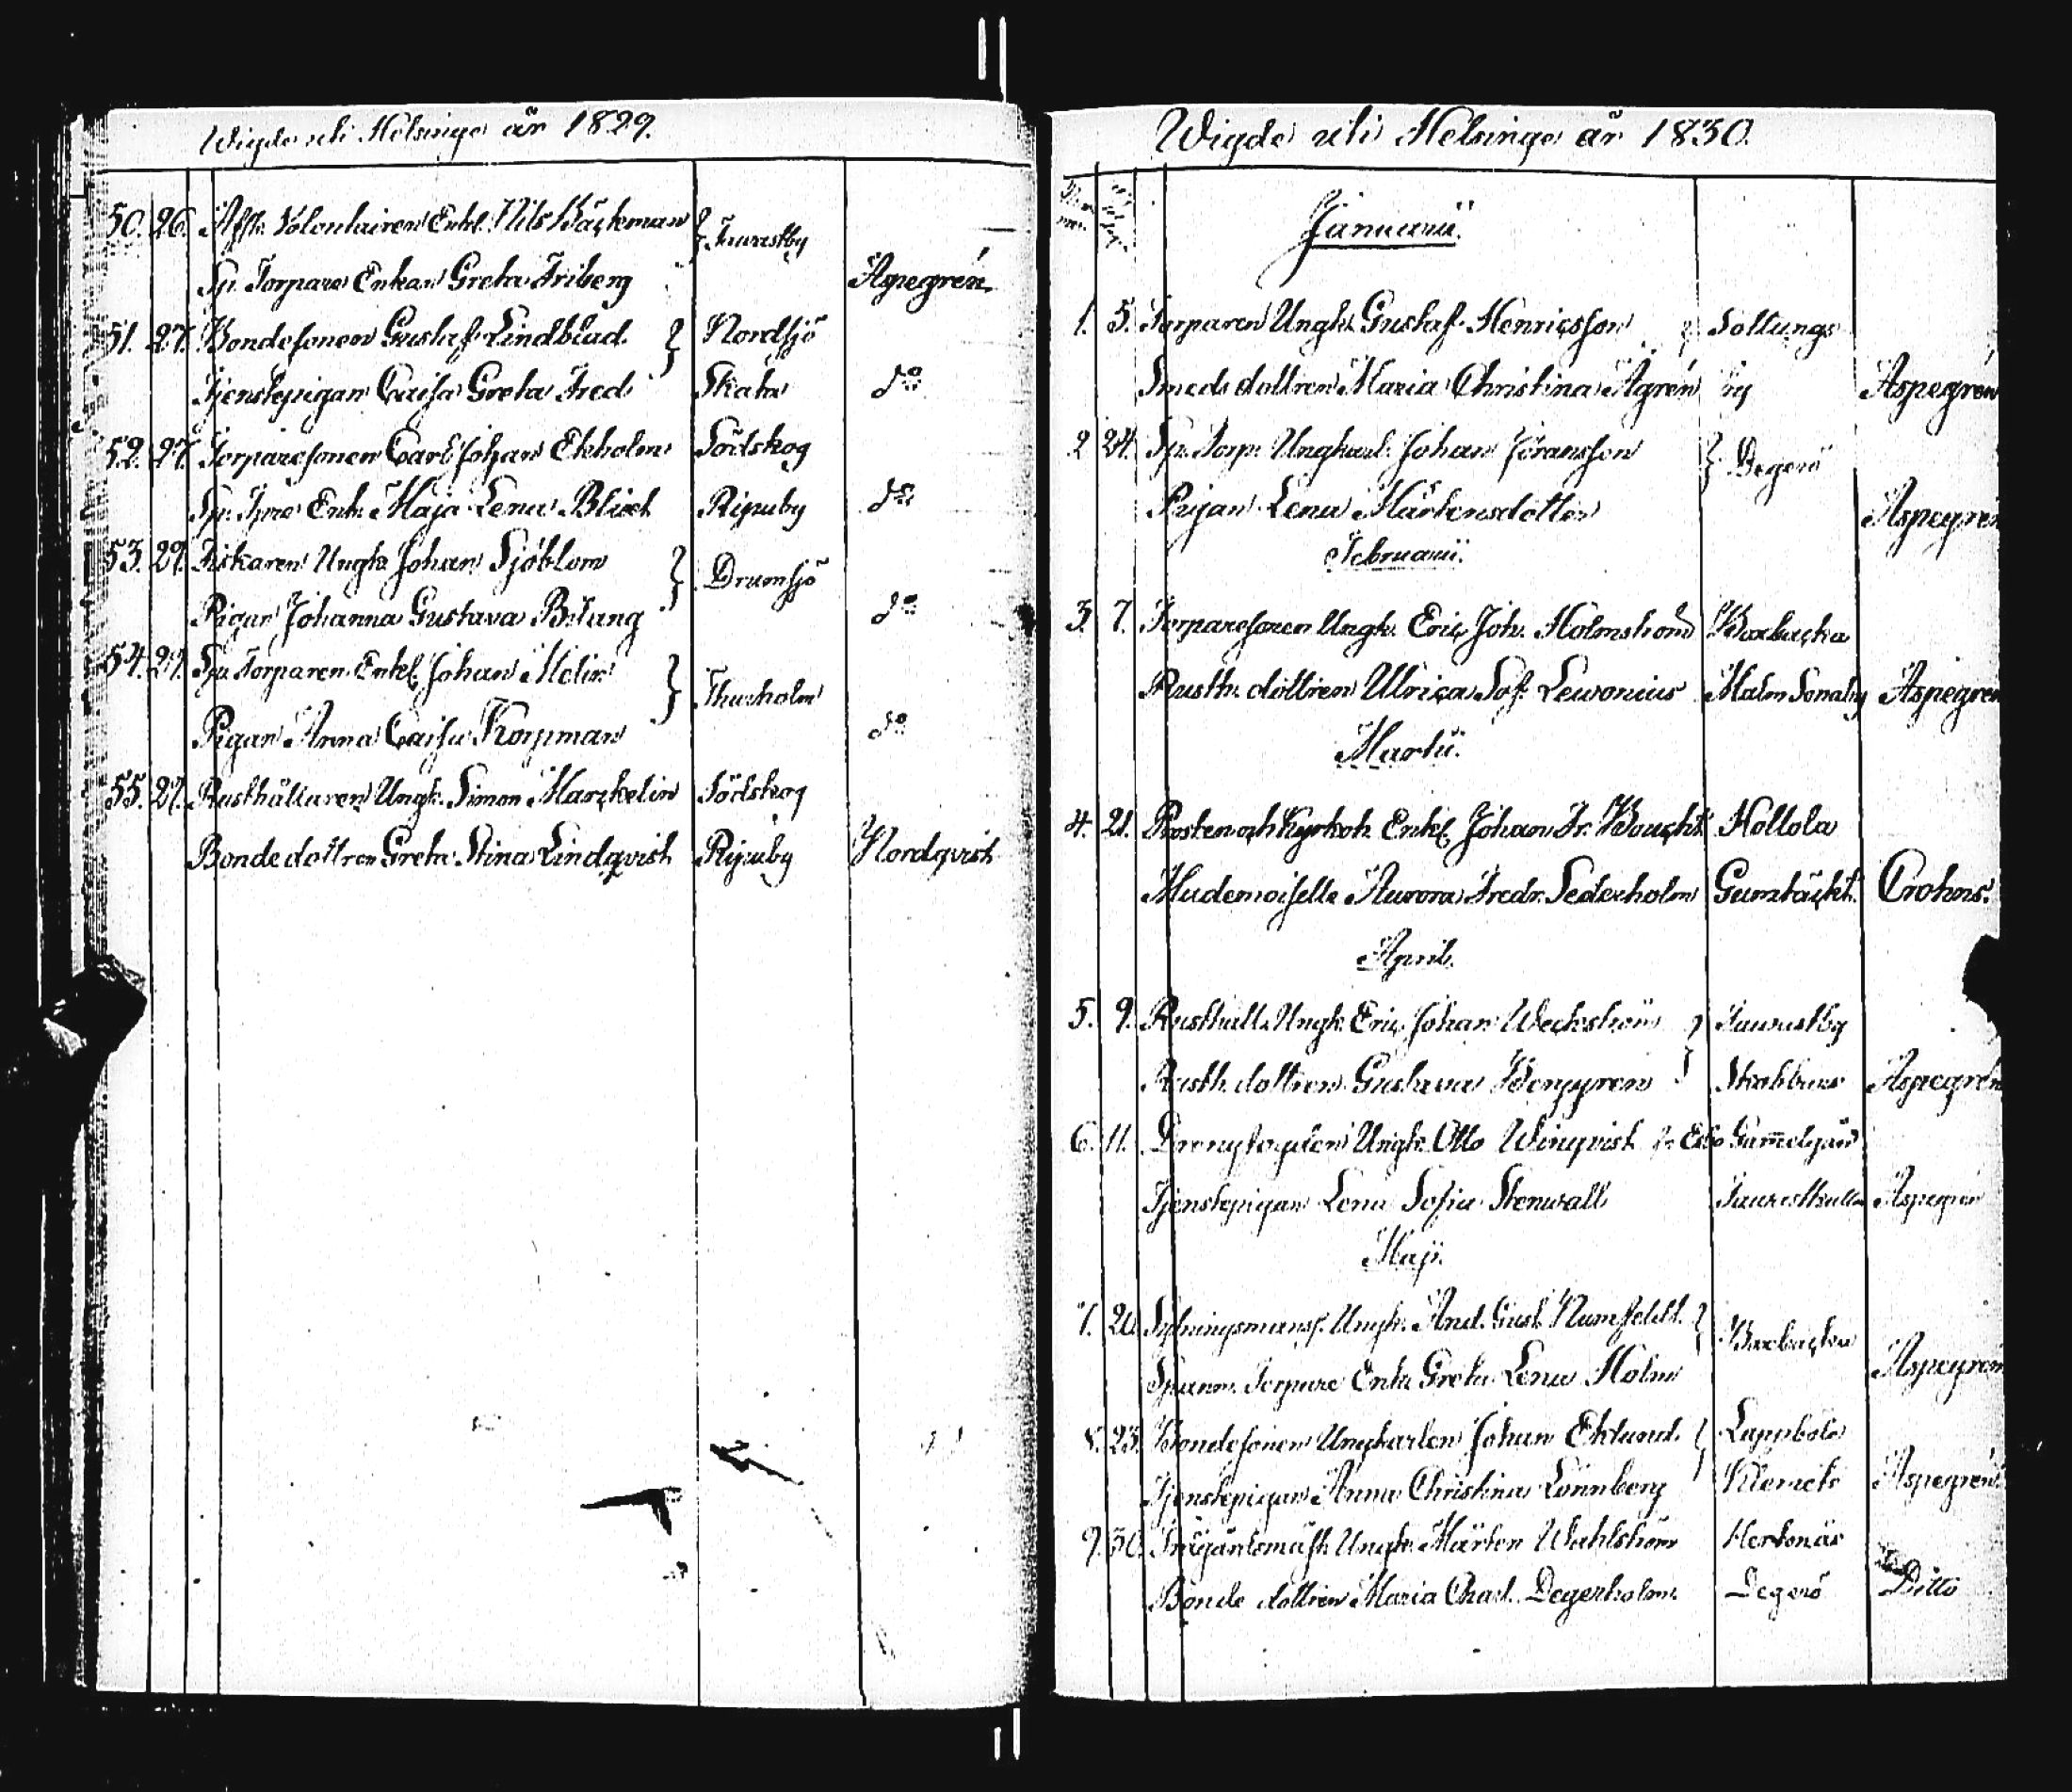 Wigde uti Helsinge år 1829.
50. 26. Afsk. Volontairen Enkl. Nils Bäckman } Tavastby
Sp. Torpare Enkan Greta Friberg Aspegrén
51. 27. Bondesonen Gustaf Lindblad } Nordsjö
Tjenstepigan Caisa Greta Fred Skata do
52. 27. Torparesonen Carl Johan Ekholm Södskog
Enk. Maja Lena Rijpuby do
53. 29. Fiskaren Ungk. Johan Sjöblom } Drumsjö
Pigan Johanna Gustava do
54. 29. Sp. Torparen Enkl. Johan Melin } Thurholm
Pigan Anna Caisa Korpman do
55. 29. Rusthållaren Ungk. Simon Marckelin Södskog
Bondedottren Greta Stina Lindqvist Rijpuby Nordqvist
Wigde uti Helsinge år 1830.
Januarii.
1. 5. Torparen Ungk. Gustaf Henricsson } Sottungs
Smeds dottren Maria Christina Ågrén by Aspegrén
2 24. Sp. Torp. Ungkarl. Johan Jöransson } Degerö
Pigan Lena Mårtensdotter Aspegrén
Februarii.
3. 7. Torparesonen Ungk. Eric Joh. Holmström Boxbacka
Rusth. dottren Ulrica Sof. Lewonius Malm Sonaby Aspegren
Martii.
4. 21. Prosten och Kyrkoh. Enkl. Johan Fr. Bouckt Hollola
Mademoiselle Aurora Fredr. Sederholm Gumtäckt. Crohns.
April.
5. 9. Rusthåll. Ungk. Eric Johan Weckström } Tavastby
Rusth. dottren Gustava Skattbacka Aspegrén
6. 11. Ungk. Otto Winqvist fr. Esbo Gammelgård
Tjenstepigan Lena Sofia Stenwall Aspegren
Maji.
7. 20. Ungk. And. Gust. } Boxbacka
Torpare Enk. Greta Lena Holm Aspegren
8. 23. Bondesonen Ungkarlen Johan Eklund } Lappböle
Tjenstepigan Anna Christina Lönnberg Klemets Aspegrén
9. 30. Trägårdsmäst. Ungk. Mårten Wahlström Hertonäs
Bonde dottren Maria Charl. Degerholm. Degerö Ditto